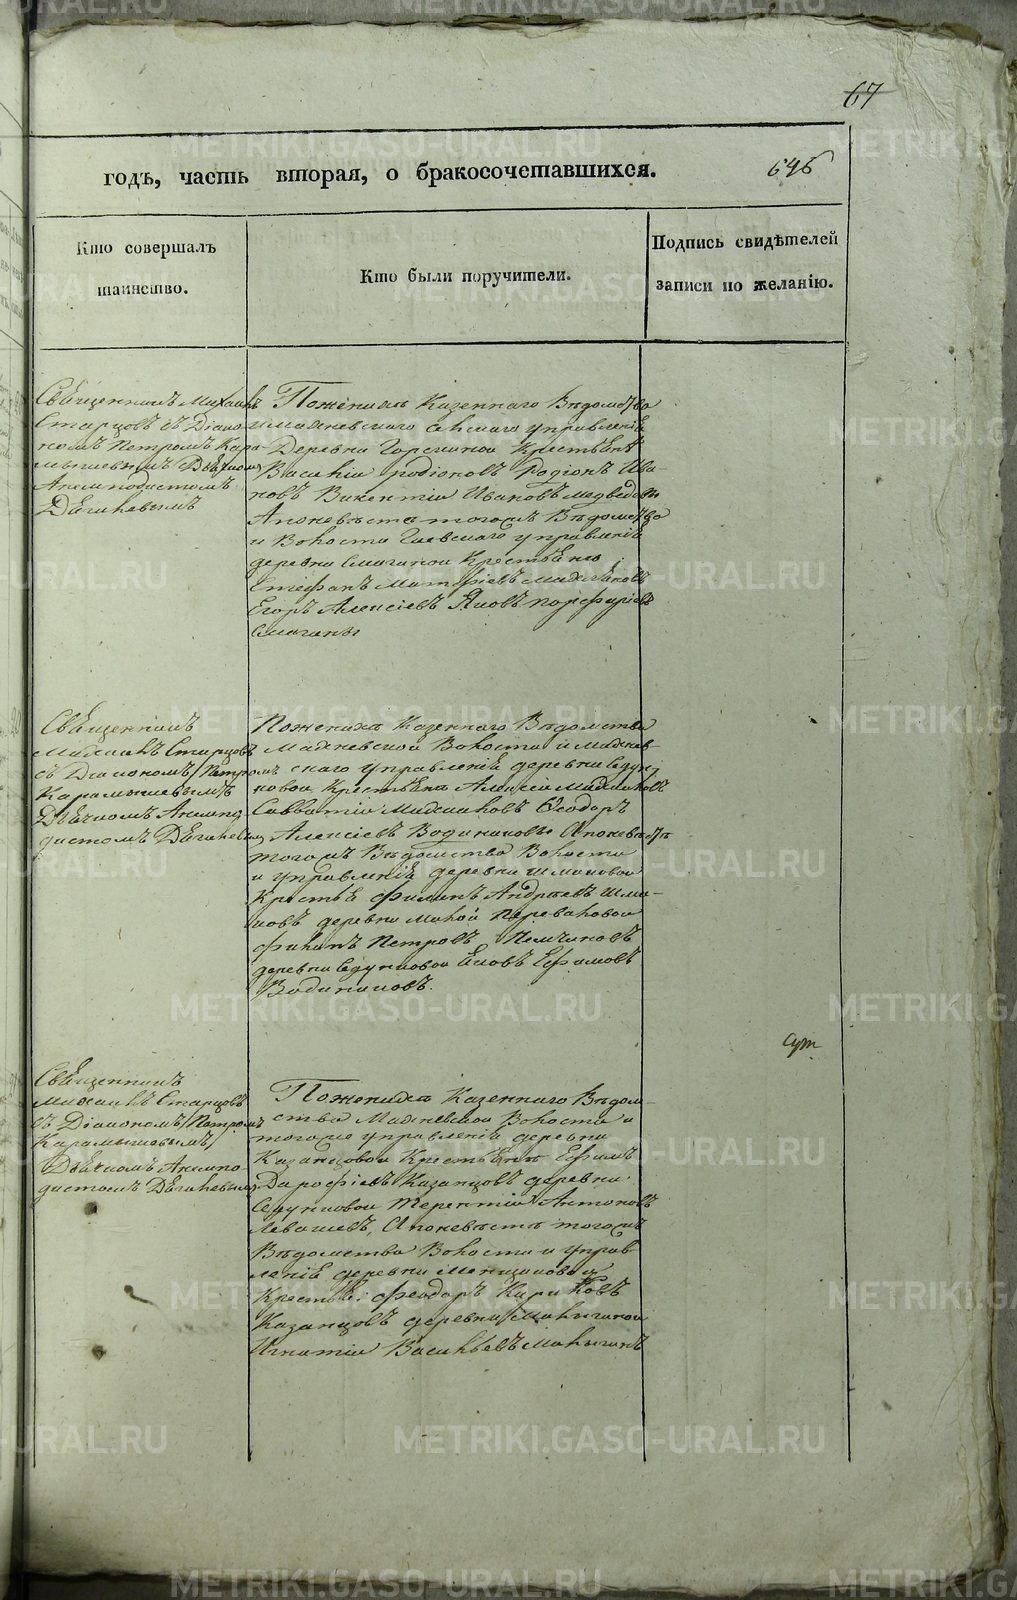 67
годъ, часть вторая, о бракосочетавшихся.
646
Кто совершалъ
таинство.
Кто были поручители.
Подпись свидѣтелей
записи по желанію.
Священникъ Михаилъ
Старцовъ съ Діако-
номъ Петромъ Кара-
мышевымъ Дьячкомъ
Анемподистомъ
Дягилевымъ
Поженихѣ Казеннаго Вѣдомства
управленія
Деревни Горскиной Крестьяне
Василій родіоновъ Родіонъ Ива-
новъ Викентій Ивановъ Медведевы
Апоневѣсте тогожъ Вѣдомства
и Волости Гаевскаго управленія
деревни Смагиной Крестьяне
Стефанъ Матфіевъ
Егоръ Алексіевъ Яковъ порфиріевъ
Смагины
Священникъ
Михаилъ Старцовъ
съ Діакономъ Петромъ
Карамышевымъ
Дьячкомъ Анемпо
дистомъ Дягилевым
Поженихѣ Казеннаго Вѣдомства
Махневской Волости и Махнев-
скаго управленія деревни Седун
новой Крестьяне Алексій Михайловъ
Савватій Михайловъ Ѳеодоръ
Алексіевъ Водиниковы Апоневѣстѣ
тогожъ Вѣдомства Волости
и управленія деревни Шмаковой
Кресть Филипъ Андреевъ Шма-
ковъ деревни Малой Переваловой
Филипъ Петровъ
деревни Седунковой Ефимовъ
Водиниковъ.
сут
Священникъ
Михаилъ Старцовъ
съ Діакономъ Петромъ
Карамышевымъ,
Дьячкомъ Анемпо-
дистомъ Дягилевымъ
Поженихѣ Казеннаго Вѣдом-
ства Махневской Волости и
тогоже управленія деревни
Казанцовой Крестьяне Ефимъ
Дарофіевъ Казанцовъ деревни
Седунковой Терентій Антоновъ
Левашевъ, Апоневѣстѣ тогожъ
Вѣдомства Волости и управ
ленія деревни
Кресть: Феодоръ Кириловъ
Казанцовъ деревни Малыгиной
Игнатій Васильевъ Малыгинъ